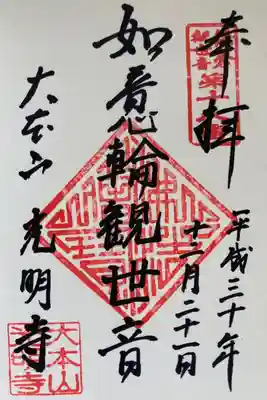 奉拝
平成三十年
十一月二十一日
如意輪観世音
大本山 光明寺
大本山
光明寺